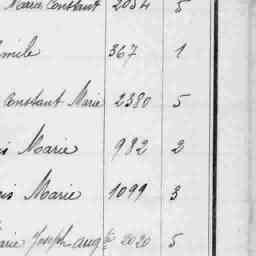 Marie Constant 2054 5
Emile 367 1
Constant Marie 2380 5
is Marie 982 2
is Marie 1099 3
Marie Joseph aug te 2020 5